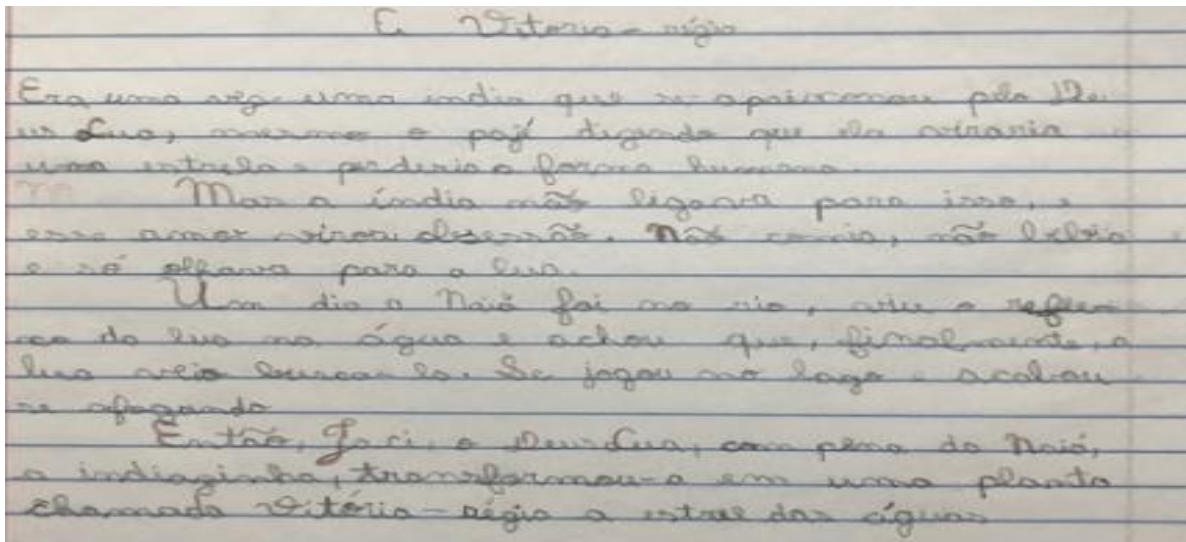 A Vitória-régia
Era uma vez uma índia que se apaixonou pelo De
us Lua, mesmo o pajé dizendo que ela viraria
uma estrela e perderia a forma humana.
Mas a índia não ligava para isso, e
esse amor virou obsessão. Não comia, não bebia
e só olhava para a lua.
Um dia a Naiá foi no rio, viu o reflexo
da lua na água e achou que, finalmente, a
lua veio buscar-la. Se jogou no lago e acabou
se afogando
Então, Jaci, o Deus Lua, com pena da Naiá,
a indiazinha, transformou-a em uma planta
chamada Vitória-régia a estrel das águas